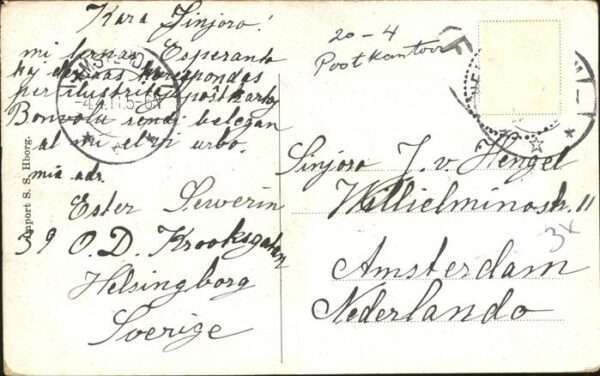 Kara Sinjoro!
mi lernas Esperanto
kaj deziras korespondas
per ilustrita poŝtkartoj
Bonvolu sendi belegan
al mi el vi urbo.
mia adr.
Ester Sewerin
39 O.D. Krooksgatan
Helsingborg
Sverige
Import S. S. Hborg.
20-4
Postkantoor
Sinjoro J. v. Hengel
Willielminastr. 11
3x
Amsterdam
Nederlando